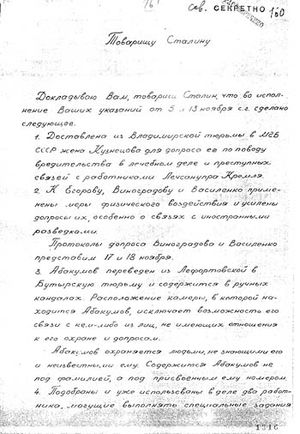 Сов. СЕКРЕТНО
Товарищу Сталину
Докладываю Вам, товарищ Сталин, что во испол-
нение Ваших указаний от 5 и 13 ноября с.г. сделано
следующее:
1. Доставлена из Владимирской тюрьмы в МГБ
СССР жена Кузнецова для допроса ее по поводу
вредительства в лечебном деле и преступных
связей с работниками Лечсанупра Кремля.
2. К Егорову, Виноградову и Василенко примене-
ны меры физического воздействия и усилены
допросы их, особенно о связях с иностранными
разведками.
Протоколы допроса Виноградова и Василенко
представим 17 и 18 ноября.
3. Абакумов переведен из Лефортовской в
Бутырскую тюрьму и содержится в ручных
кандалах. Расположение камеры, в которой на-
ходится Абакумов, исключает возможность его
связи с кем-либо из лиц, не имеющих отношения
к его охране и допросам.
Абакумов охраняется людьми, не знающими его
и неизвестными ему. Содержится Абакумов не
под фамилией, а под присвоенным ему номером.
4. Подобраны и уже использованы в деле два работ-
ника, могущие выполнять специальные задания